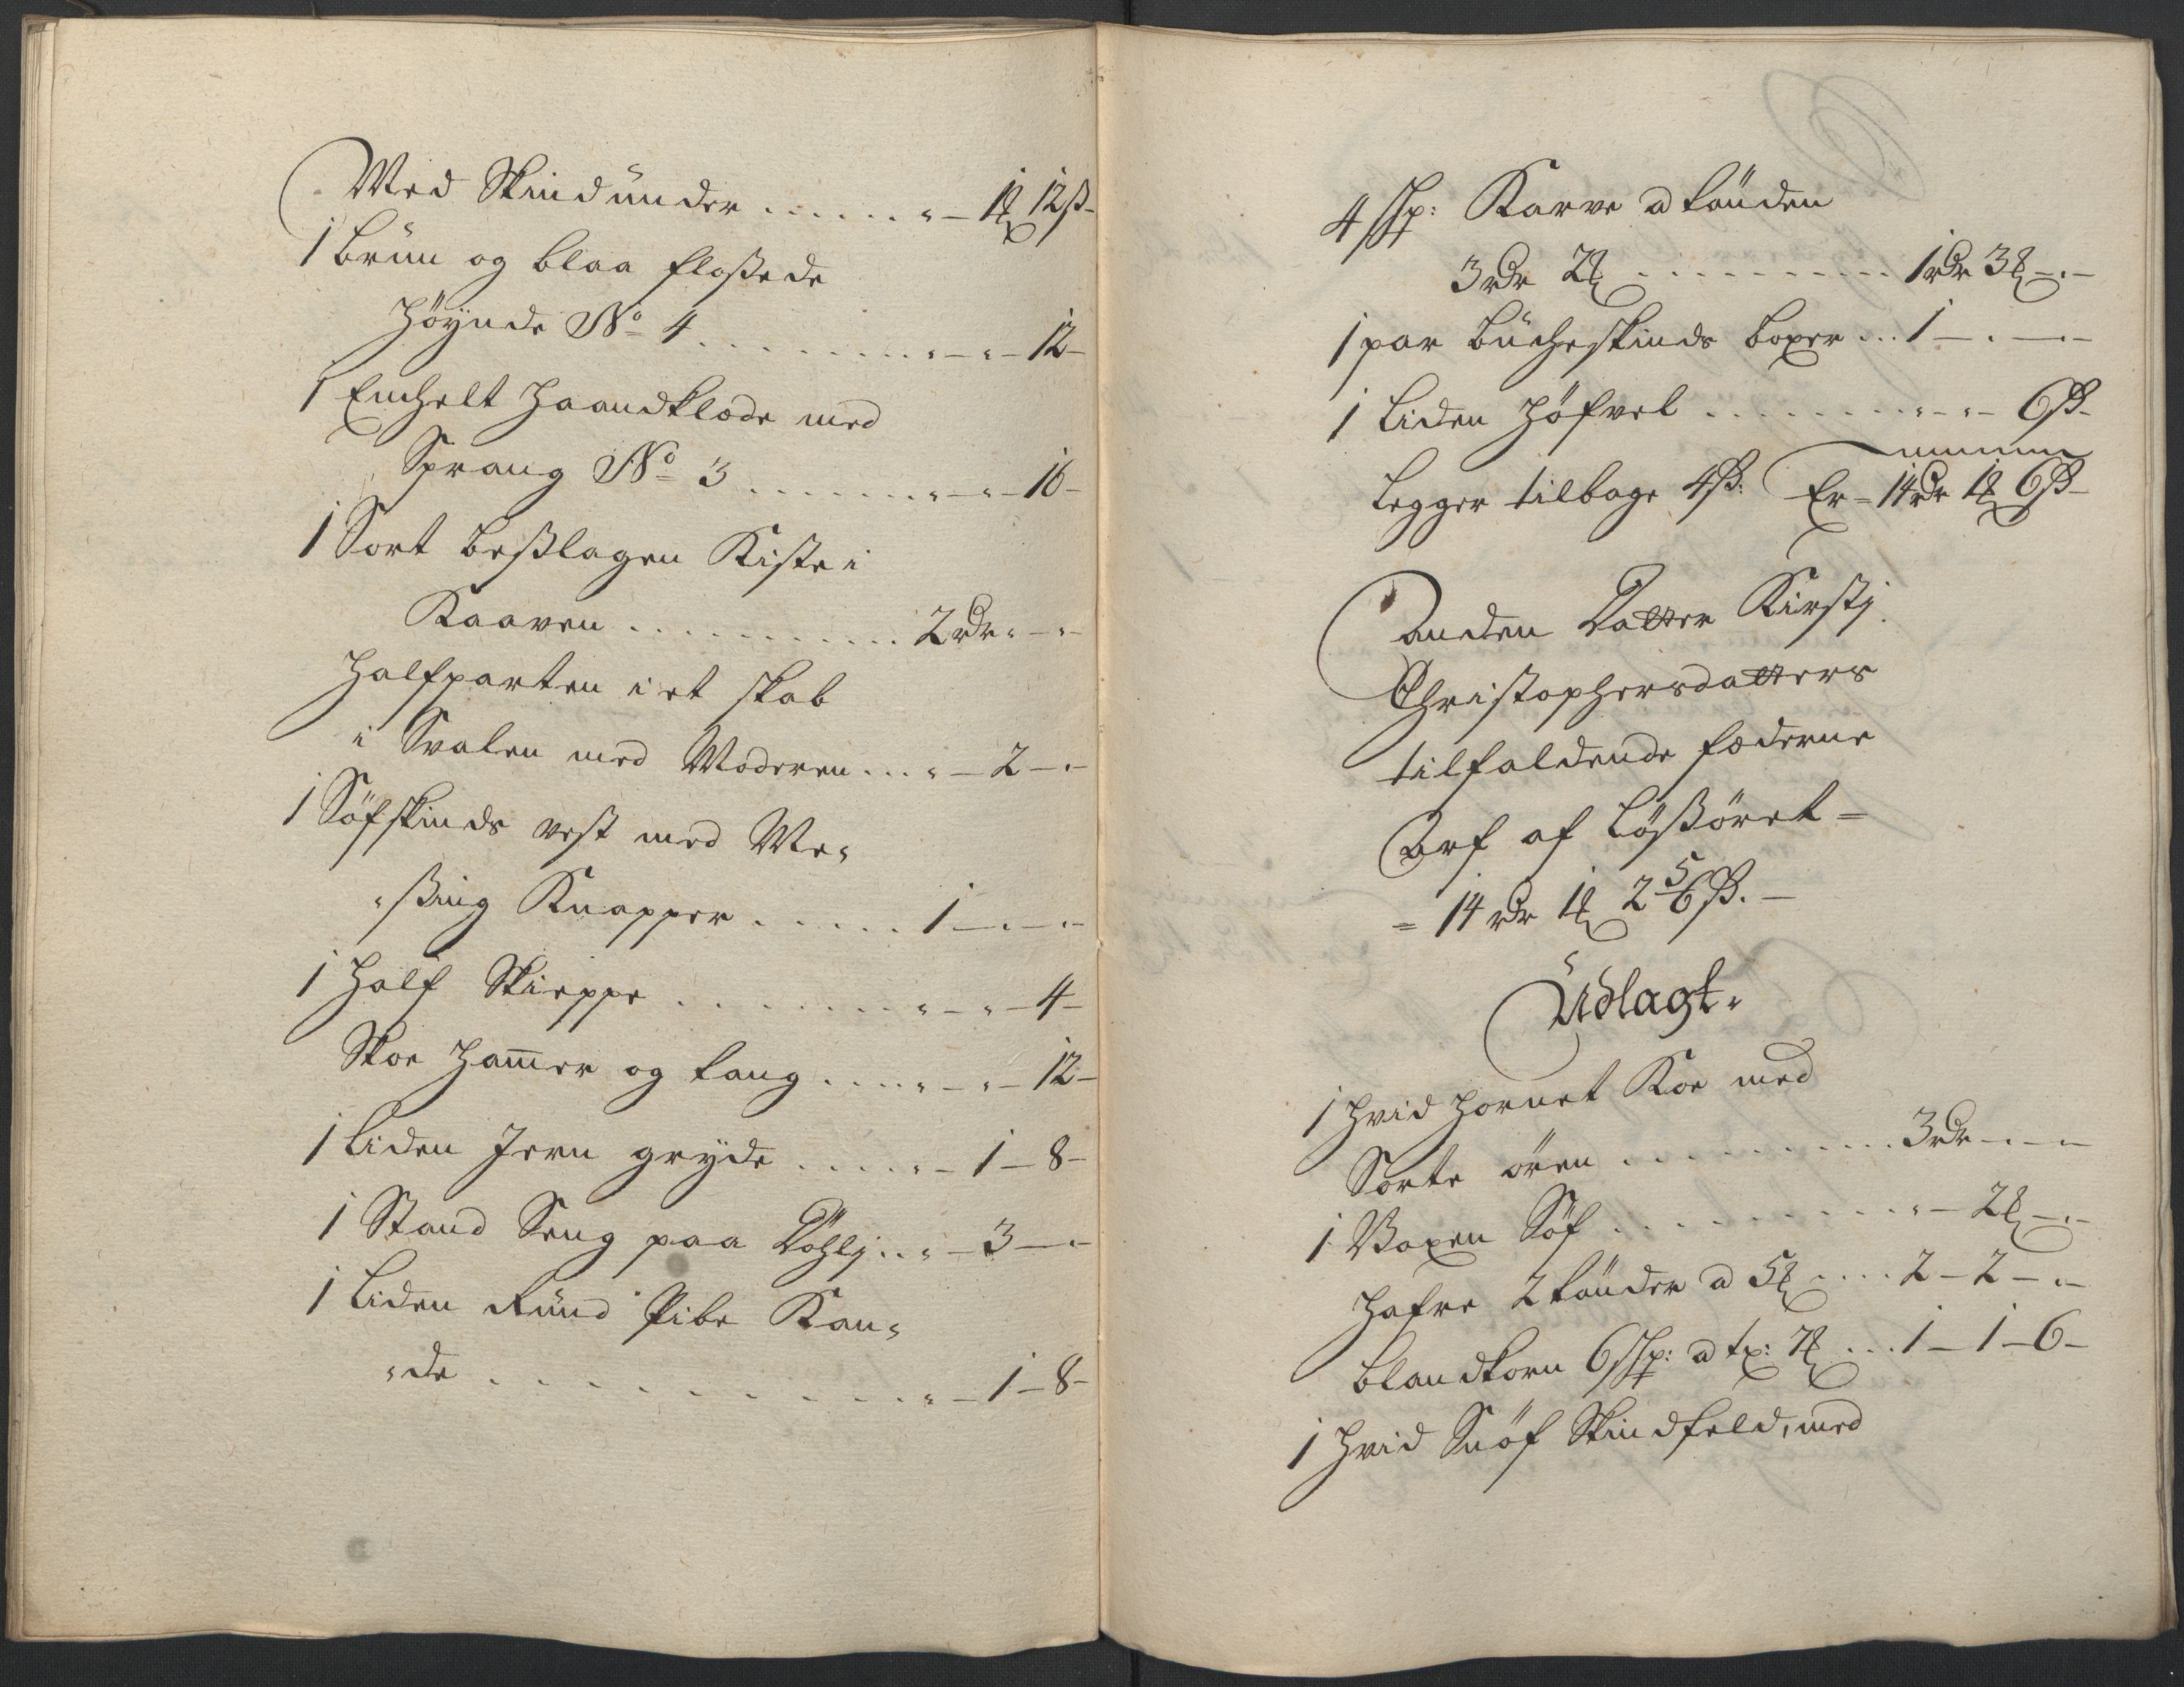 Med Skind ünder ...... " - 1 ꝑ 12 ß -
1 brün og blaa floßede
Höÿnde No 4 ......... " - " - 12 -
1 Enchelt Haandklæde med
Sprang No 3 ....... " - " - 16 -
1 Sort beßlagen Kiste i
Kaaven ............ 2 rdr " - " -
Halfparten i et skab
i Svalen med Moderen ... " - 2 - " -
1 Söfskinds vest med Me"
"ßing Knapper ...... 1 - " - " -
1 Half Skieppe ........ " - " - 4 -
Skoe Ham̅er og tang .... " - " - 12 -
1 Liden Jern gryde ..... " - 1 - 8 -
1 Stand Seng paa Döhlj .. " - 3 - " -
1 Liden Ründ Pibe Kan"
"de ............ " - 1 - 8 -
4 Skp: Karve a tönden
3 rdr 2 ꝑ .......... 1 rdr 3 ꝑ - " -
1 par bücheskinds boxer ... 1 - " - " -
1 Liden Höfvel ........ " - " - 6 ß -
Legger tilbage 4 ß: Er = 14 rdr 1 ꝑ 6 ß -
Anden Datter Kirstj
Christophersdatters
tilfaldende fæderne
Arf af Lößöret =
= 14 rdr 1 ꝑ 2 5/6 ß. -
Üdlagt.
1 hvid hornet Koe med
Sorte ören .......... 3 rdr - " -
1 Voxen Söf .......... " - 2 ꝑ - " -
Hafre 2 tönder a 5 ꝑ .... 2 - 2 - " -
blandkorn 6 Skp: a tx: 7 ꝑ ... 1 - 1 - 6 -
1 hvid Snöf Skindfeld, med